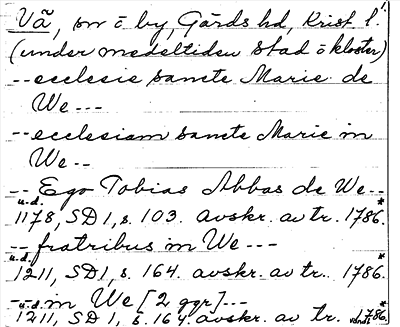 Vã, sn ō by, Gärds hd, Krist. l.
(under medeltiden stad ō kloster)
-- ecclesie sancte Marie de
We ---
-- ecclesiam sancte Marie in
We --
-- Ego Tobias Abbas de We --
u.d.
1178, SD 1, s. 103. avskr. av tr. 1786.*
-- fratribus in We ---
u.d.
1211, SD 1, s. 164. avskr. av tr. 1786.*
-- in We [2 ggr] ---
u.d.
1211, SD 1, s. 164. avskr. av tr. 1786.*
vänd!